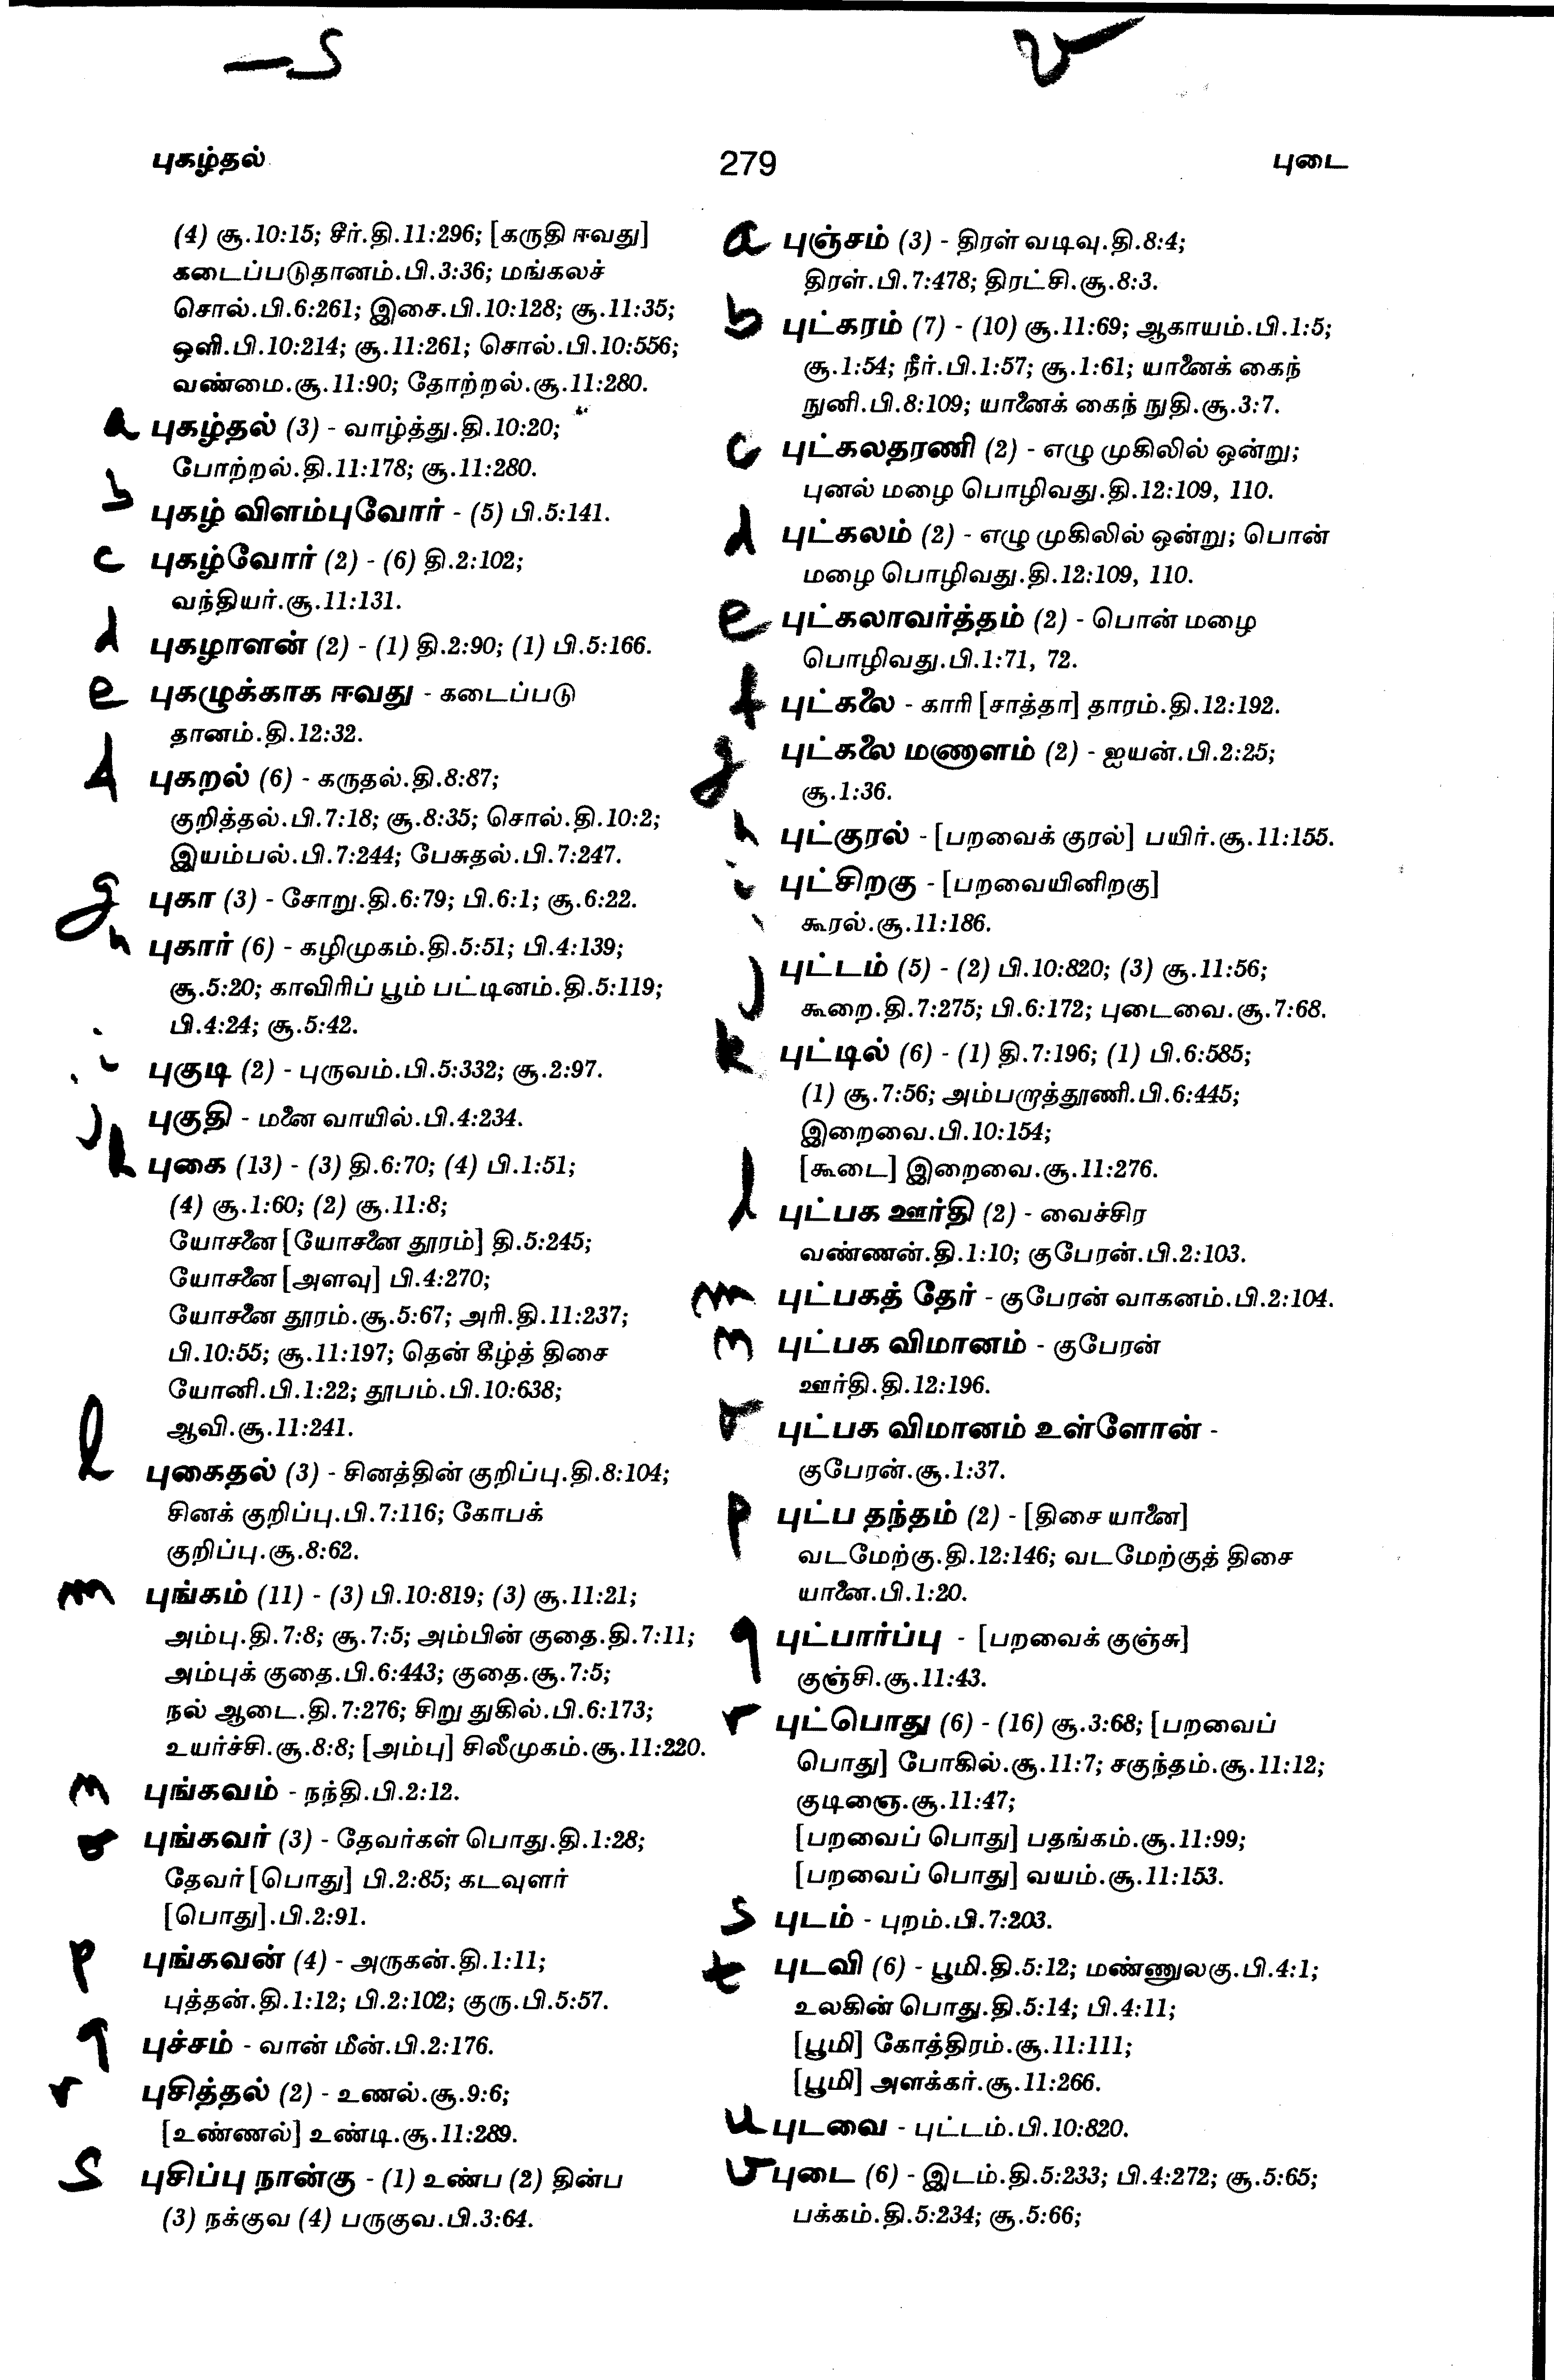 –s
v
புகழ்தல்
279
புடை
(4) சூ.10:15; சீர்.தி.11:296; [கருதி ஈவது]
கடைப்படுதானம்.பி.3:36; மங்கலச்
சொல்.பி.6:261; இசை.பி.10:128; சூ.11:35;
ஒளி.பி.10:214; சூ.11:261; சொல்.பி.10:556;
வண்மை.சூ.11:90; தோற்றல்.சூ.11:280.
a புகழ்தல் (3) - வாழ்த்து.தி.10:20;
போற்றல்.தி.11:178; சூ.11:280.
b புகழ் விளம்புவோர் - (5) பி.5:141.
c புகழ்வோர் (2) - (6) தி.2:102;
வந்தியர்.சூ.11:131.
d புகழாளன் (2) - (1) தி.2:90; (1) பி.5:166.
e புகழுக்காக ஈவது - கடைப்படு
தானம்.தி.12:32.
f புகறல் (6) - கருதல்.தி.8:87;
குறித்தல்.பி.7:18; சூ.8:35; சொல்.தி.10:2;
இயம்பல்.பி.7:244; பேசுதல்.பி.7:247.
g புகா (3) - சோறு.தி.6:79; பி.6:1; சூ.6:22.
h புகார் (6) - கழிமுகம்.தி.5:51; பி.4:139;
சூ.5:20; காவிரிப் பூம் பட்டினம்.தி.5:119;
பி.4:24; சூ.5:42.
i புகுடி (2) - புருவம்.பி.5:332; சூ.2:97.
j புகுதி - மனை வாயில்.பி.4:234.
k புகை (13) - (3) தி.6:70; (4) பி.1:51;
(4) சூ.1:60; (2) சூ.11:8;
யோசனை [யோசனை தூரம்] தி.5:245;
யோசனை [அளவு] பி.4:270;
யோசனை தூரம்.சூ.5:67; அரி.தி.11:237;
பி.10:55; சூ.11:197; தென் கீழ்த் திசை
யோனி.பி.1:22; தூபம்.பி.10:638;
ஆவி.சூ.11:241.
l புகைதல் (3) - சினத்தின் குறிப்பு.தி.8:104;
சினக் குறிப்பு.பி.7:116; கோபக்
குறிப்பு.சூ.8:62.
m புங்கம் (11) - (3) பி.10:819; (3) சூ.11:21;
அம்பு.தி.7:8; சூ.7:5; அம்பின் குதை.தி.7:11;
அம்புக் குதை.பி.6:443; குதை.சூ.7:5;
நல் ஆடை.தி.7:276; சிறு துகில்.பி.6:173;
உயர்ச்சி.சூ.8:8; [அம்பு] சிலீமுகம்.சூ.11:220.
n புங்கவம் - நந்தி.பி.2:12.
o புங்கவர் (3) - தேவர்கள் பொது.தி.1:28;
தேவர் [பொது] பி.2:85; கடவுளர்
[பொது].பி.2:91.
p புங்கவன் (4) - அருகன்.தி.1:11;
புத்தன்.தி.1:12; பி.2:102; குரு.பி.5:57.
q புச்சம் - வான் மீன்.பி.2:176.
r புசித்தல் (2) - உணல்.சூ.9:6;
[உண்ணல்] உண்டி.சூ.11:289.
s புசிப்பு நான்கு - (1) உண்ப (2) தின்ப
(3) நக்குவ (4) பருகுவ.பி.3:64.
a புஞ்சம் (3) - திரள் வடிவு.தி.8:4;
திரள்.பி.7:478; திரட்சி.சூ.8:3.
b புட்கரம் (7) - (10) சூ.11:69; ஆகாயம்.பி.1:5;
சூ.1:54; நீர்.பி.1:57; சூ.1:61; யானைக் கைந்
நுனி.பி.8:109; யானைக் கைந் நுதி.சூ.3:7.
c புட்கலதரணி (2) - எழு முகிலில் ஒன்று;
புனல் மழை பொழிவது.தி.12:109, 110.
d புட்கலம் (2) - எழு முகிலில் ஒன்று; பொன்
மழை பொழிவது.தி.12:109, 110.
e புட்கலாவர்த்தம் (2) - பொன் மழை
பொழிவது.பி.1:71, 72.
f புட்கலை - காரி [சாத்தா] தாரம்.தி.12:192.
g புட்கலை மணாளம் (2) - ஐயன்.பி.2:25;
சூ.1:36.
h புட்குரல் - [பறவைக் குரல்] பயிர்.சூ.11:155.
i புட்சிறகு - [பறவையினிறகு]
கூரல்.சூ.11:186.
j புட்டம் (5) - (2) பி.10:820; (3) சூ.11:56;
கூறை.தி.7:275; பி.6:172; புடைவை.சூ.7:68.
k புட்டில் (6) - (1) தி.7:196; (1) பி.6:585;
(1) சூ.7:56; அம்பறாத்தூணி.பி.6:445;
இறைவை.பி.10:154;
[கூடை] இறைவை.சூ.11:276.
l புட்பக ஊர்தி (2) - வைச்சிர
வண்ணன்.தி.1:10; குபேரன்.பி.2:103.
m புட்பகத் தேர் - குபேரன் வாகனம்.பி.2:104.
n புட்பக விமானம் - குபேரன்
ஊர்தி.தி.12:196.
o புட்பக விமானம் உள்ளோன் -
குபேரன்.சூ.1:37.
p புட்ப தந்தம் (2) - [திசை யானை]
வடமேற்கு.தி.12:146; வடமேற்குத் திசை
யானை.பி.1:20.
q புட்பார்ப்பு - [பறவைக் குஞ்சு]
குஞ்சி.சூ.11:43.
r புட்பொது (6) - (16) சூ.3:68; [பறவைப்
பொது] போகில்.சூ.11:7; சகுந்தம்.சூ.11:12;
குடிஞை.சூ.11:47;
[பறவைப் பொது] பதங்கம்.சூ.11:99;
[பறவைப் பொது] வயம்.சூ.11:153.
s புடம் - புறம்.பி.7:203.
t புடவி (6) - பூமி.தி.5:12; மண்ணுலகு.பி.4:1;
உலகின் பொது.தி.5:14; பி.4:11;
[பூமி] கோத்திரம்.சூ.11:111;
[பூமி] அளக்கர்.சூ.11:266.
u புடவை - புட்டம்.பி.10:820.
v புடை (6) - இடம்.தி.5:233; பி.4:272; சூ.5:65;
பக்கம்.தி.5:234; சூ.5:66;